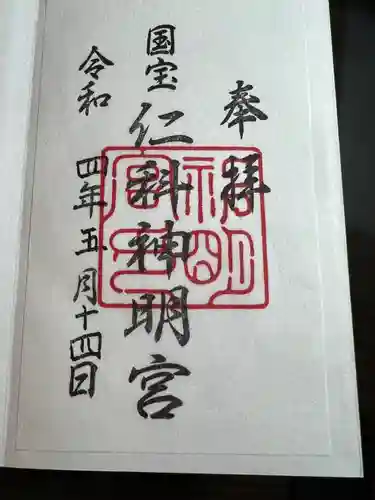 奉拝
国宝
仁科神明宮
令和四年五月十四日
神明宮印